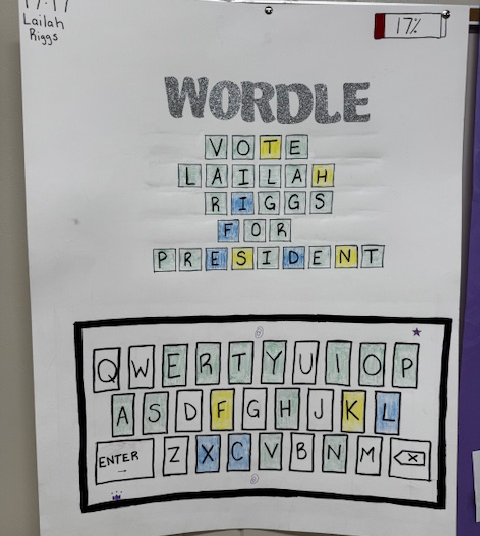 Lailah
Riggs
17%
WORDLE
VOTE
LAILAH
RIGGS
FOR
PRESIDENT
QWERTYUIOP
ASDFGHJKL
ENTER → ZXCVBNM X